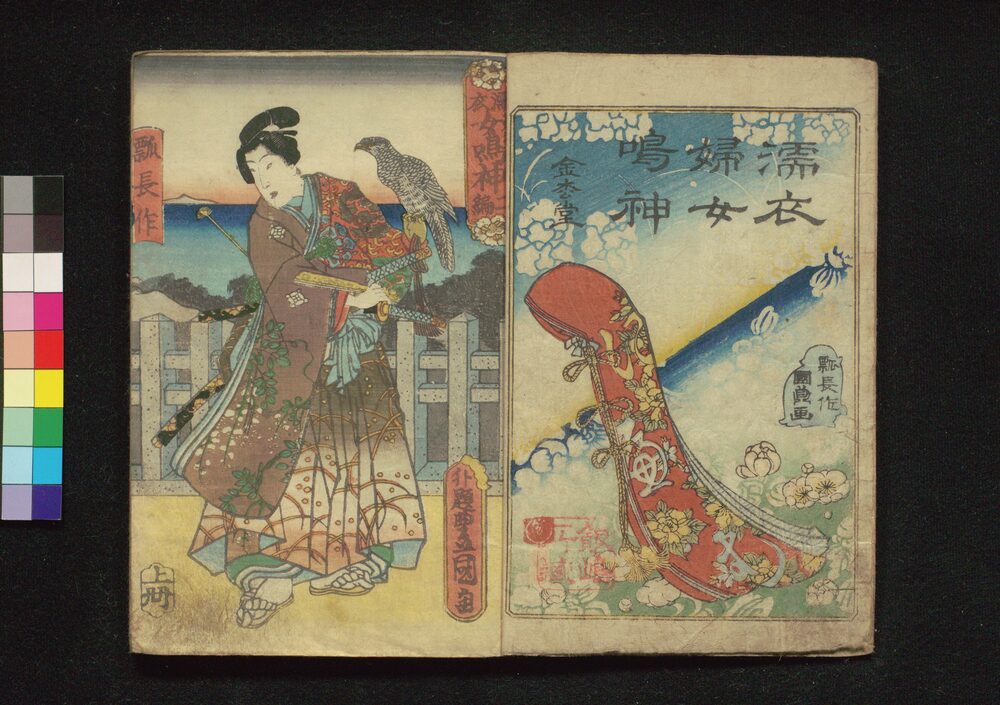 濡衣
婦女
鳴神
金杢堂
瓢長作
國貞画
濡衣
女鳴神
編
瓢長作
外題
豊国画
上冊